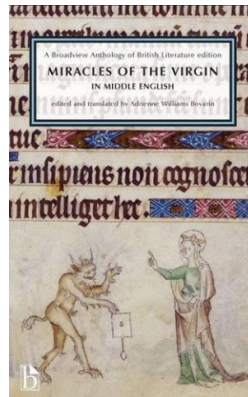 A Broadview Anthology of British Literature edition
MIRACLES OF THE VIRGIN
IN MIDDLE ENGLISH
edited and translated by Adrienne Williams Boyarin
tue.
r insipiens non cognosce
intelliget hec.
b